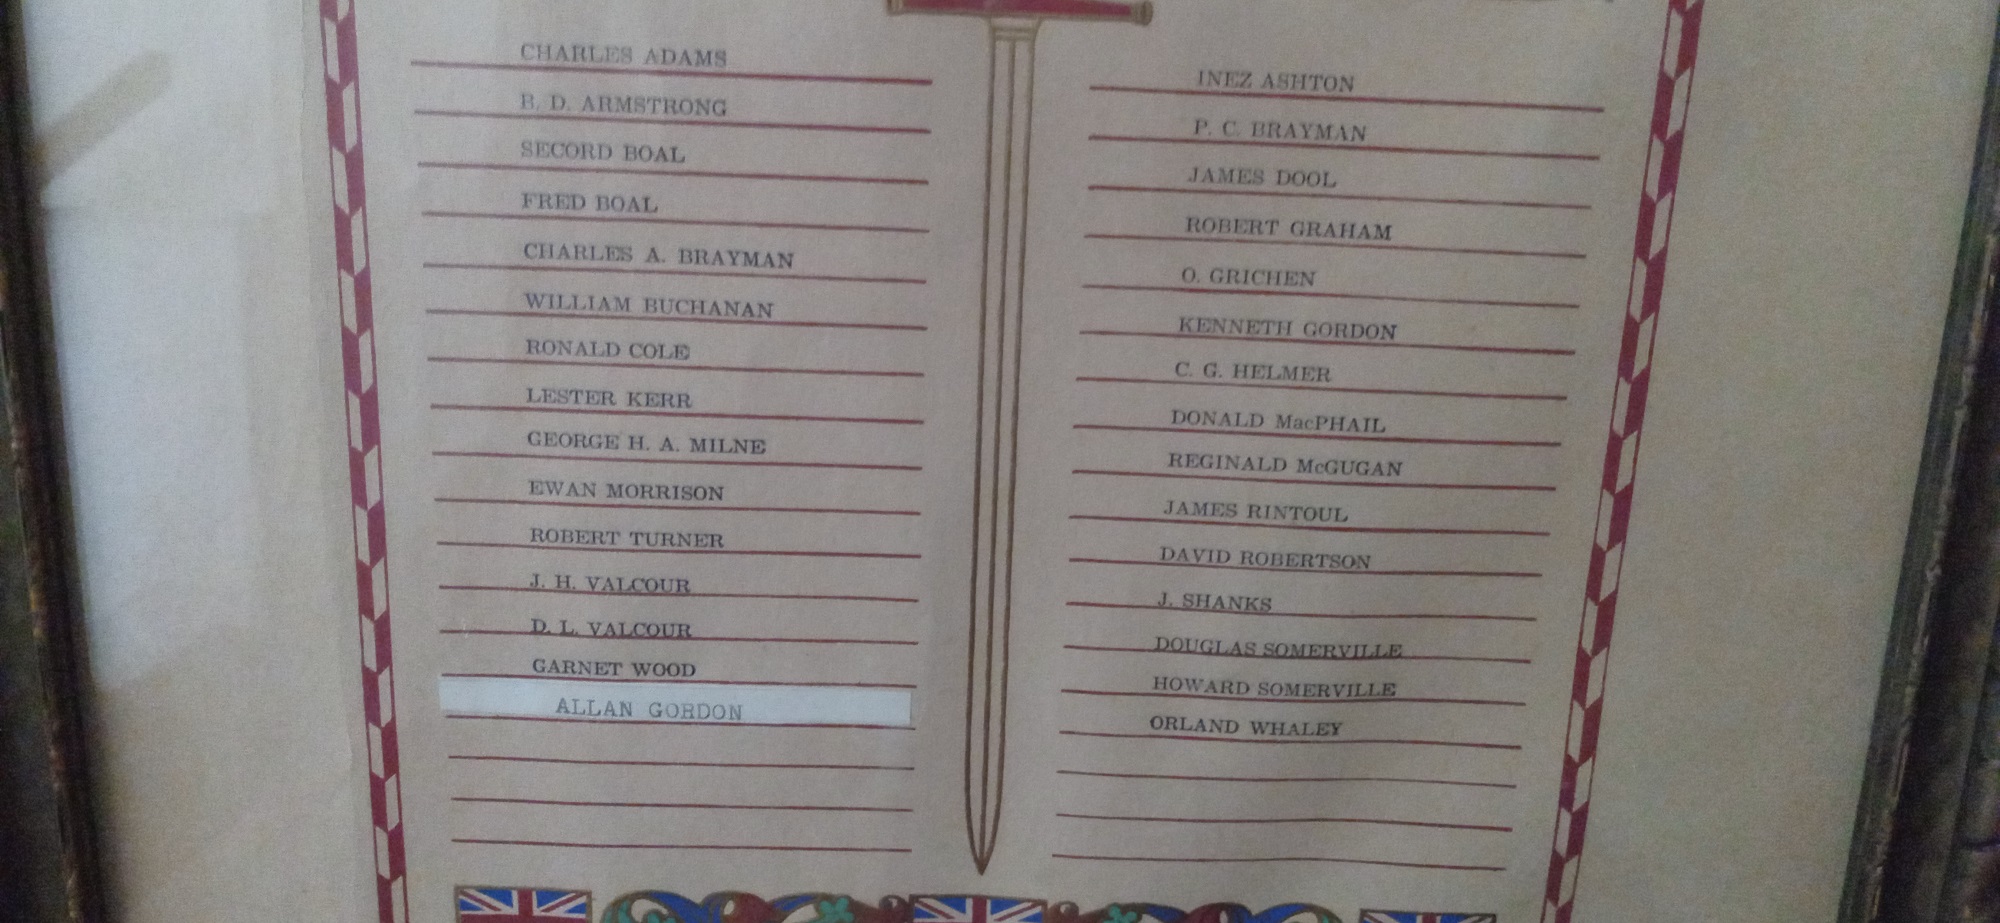 CHARLES ADAMS
R. D. ARMSTRONG
SECORD BOAL
FRED BOAL
CHARLES A. BRAYMAN
WILLIAM BUCHANAN
RONALD COLE
LESTER KERR
GEORGE H. A. MILNE
EWAN MORRISON
ROBERT TURNER
J. H. VALCOUR
D. L. VALCOUR
GARNET WOOD
ALLAN GORDON
INEZ ASHTON
P. C. BRAYMAN
JAMES DOOL
ROBERT GRAHAM
O. GRICHEN
KENNETH GORDON
C. G. HELMER
DONALD MacPHAIL
REGINALD McGUGAN
JAMES RINTOUL
DAVID ROBERTSON
J. SHANKS
DOUGLAS SOMERVILLE
HOWARD SOMERVILLE
ORLAND WHALEY